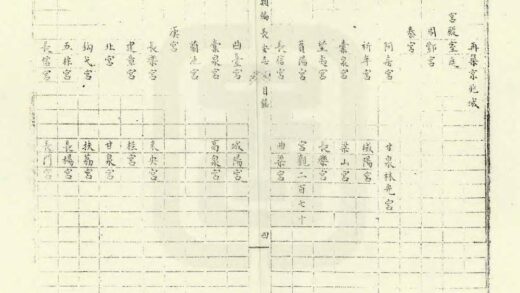 再築京兆城
宮殿室庭
周酆宮
秦宮
阿房宮 甘泉林光宮
祈年宮 咸陽宮
橐泉宮 梁山宮
望夷宮 長樂宮
萯陽宮 宮觀二百七十
長信宮 曲梁宮
類編長安志 目錄 四
曲臺宮 咸陽宮
橐泉宮 高泉宮
漢宮
長樂宮 未央宮
建章宮 桂宮
北宮 甘泉宮
鉤弋宮 扶荔宮
五柞宮 長楊宮
長信宮 長門宮